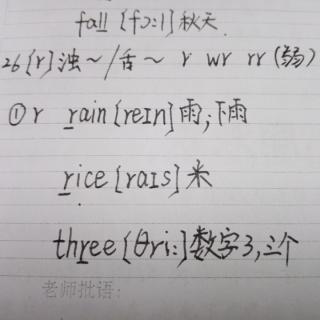 fall [fɔ:l] 秋天
26 [r] 浊～/舌～ r wr rr (弱)
① r rain [reɪn] 雨;下雨
rice [raɪs] 米
three [θri:] 数字3,三个
老师批语: